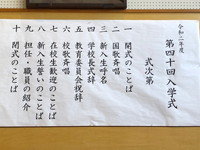 令和二年度
第四十回入学式
式次第
一 開式のことば
二 国歌斉唱
三 新入生呼名
四 学校長式辞
五 教育委員会祝辞
六 校歌斉唱
七 在校生歓迎のことば
八 新入生誓いのことば
九 担任・職員の紹介
十 閉式のことば